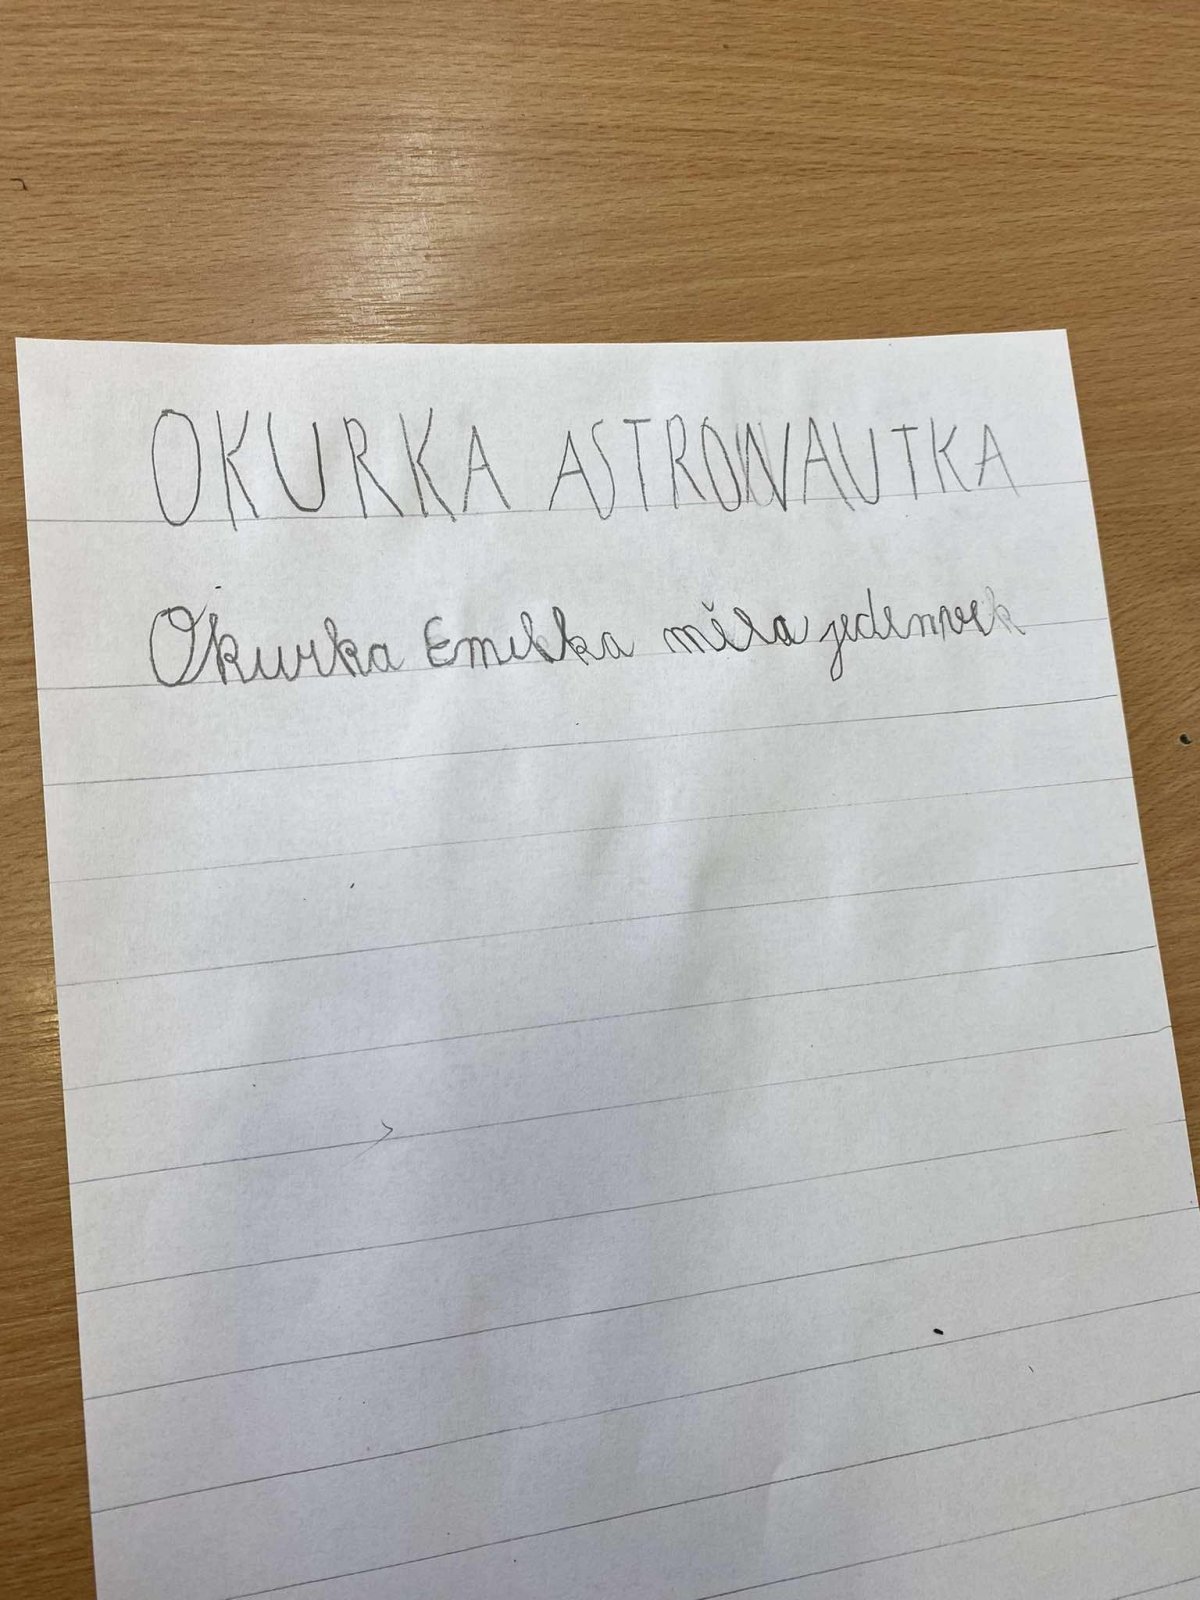 OKURKA ASTRONAUTKA
Okurka Emilka měla jeden